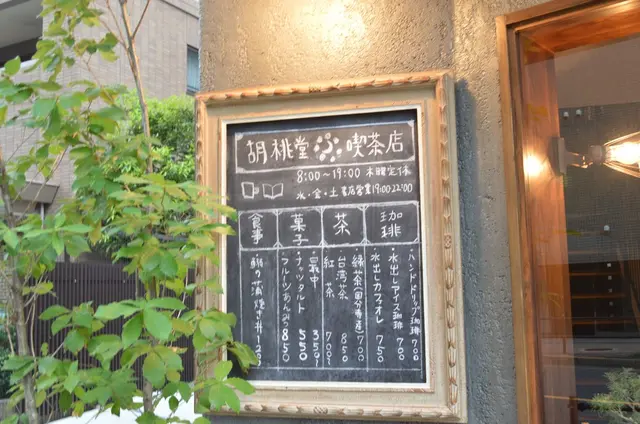 胡桃堂喫茶店
8:00〜19:00 木曜定休
水・金・土 書店営業19:00-22:00
珈琲
・ハンドドリップ珈琲 700
・水出しアイス珈琲 700
・水出しカフェオレ 750
茶
・緑茶(国分寺産) 700
台湾茶 850
紅茶 700〜
菓子
・最中 350〜
・ナッツタルト 550
・フルーツあんみつ 850
食事
の蒲焼き丼